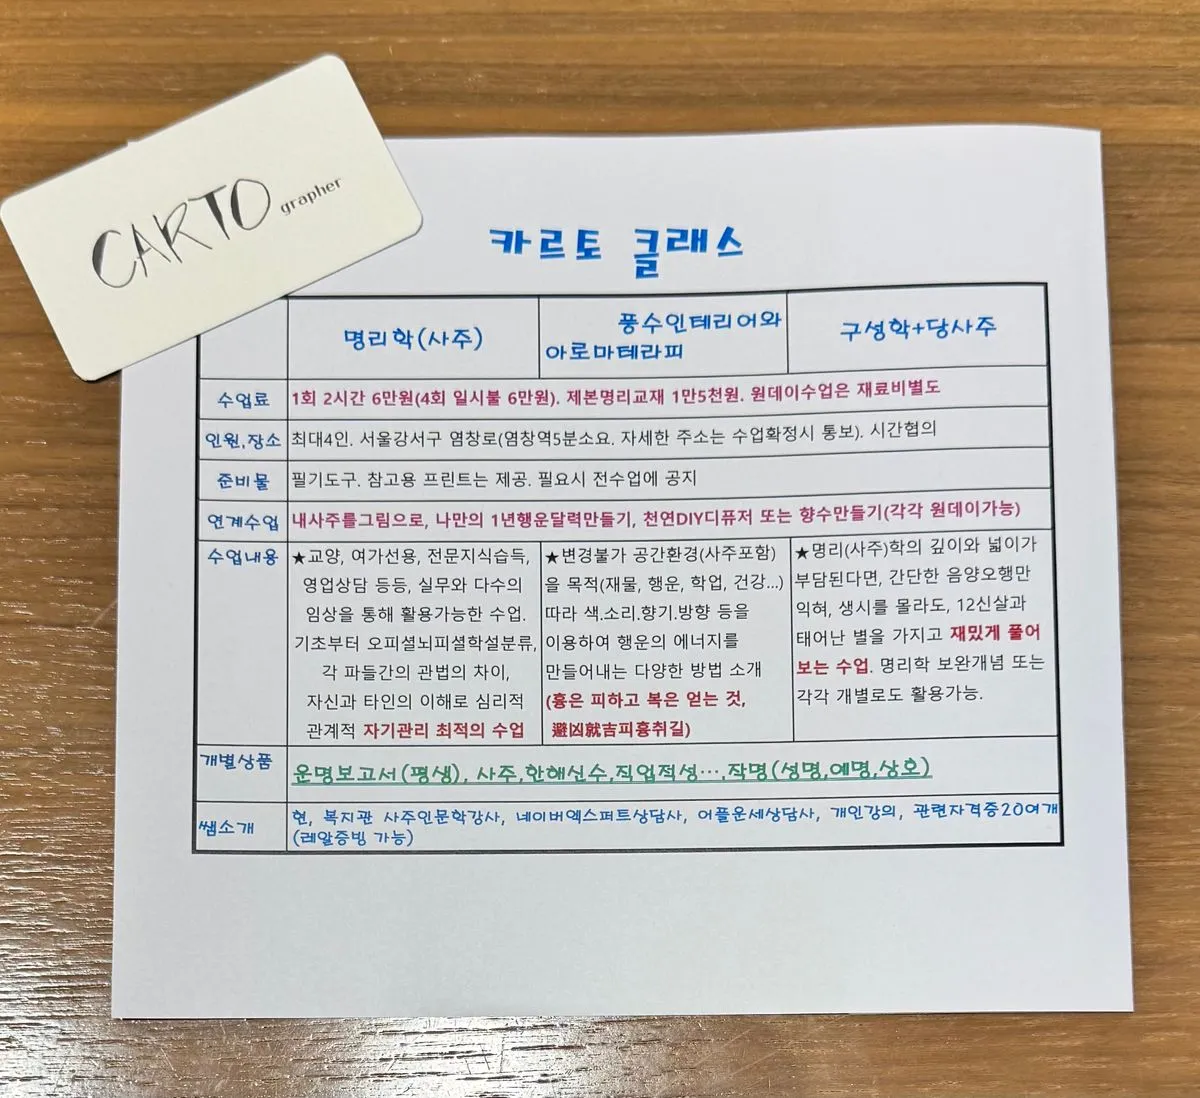 CARTO grapher
카르토 클래스
명리학(사주)
풍수인테리어와
아로마테라피
구성학+당사주
수업료
1회 2시간 6만원(4회 일시불 6만원). 제본명리교재 1만5천원. 원데이수업은 재료비별도
인원,장소
최대4인. 서울강서구 염창로(염창역5분소요. 자세한 주소는 수업확정시 통보). 시간협의
준비물
필기도구. 참고용 프린트는 제공. 필요시 전수업에 공지
연계수업
내사주를그림으로, 나만의 1년행운달력만들기, 천연DIY디퓨저 또는 향수만들기(각각 원데이가능)
수업내용
★교양, 여가선용, 전문지식습득,
영업상담 등등, 실무와 다수의
임상을 통해 활용가능한 수업.
기초부터 오피셜뇌피셜학설분류,
각 파들간의 관법의 차이,
자신과 타인의 이해로 심리적
관계적 자기관리 최적의 수업
★변경불가 공간환경(사주포함)
을 목적(재물, 행운, 학업, 건강...)
따라 색.소리.향기.방향 등을
이용하여 행운의 에너지를
만들어내는 다양한 방법 소개
(흉은 피하고 복은 얻는 것,
避凶就吉피흉취길)
★명리(사주)학의 깊이와 넓이가
부담된다면, 간단한 음양오행만
익혀, 생시를 몰라도, 12신살과
태어난 별을 가지고 재밌게 풀어
보는 수업. 명리학 보완개념 또는
각각 개별로도 활용가능.
개별상품
운명보고서(평생), 사주,한해신수,직업적성…,작명(성명,예명,상호)
쌤소개
현, 복지관 사주인문학강사, 네이버엑스퍼트상담사, 어플운세상담사, 개인강의, 관련자격증20여개
(레알증빙 가능)